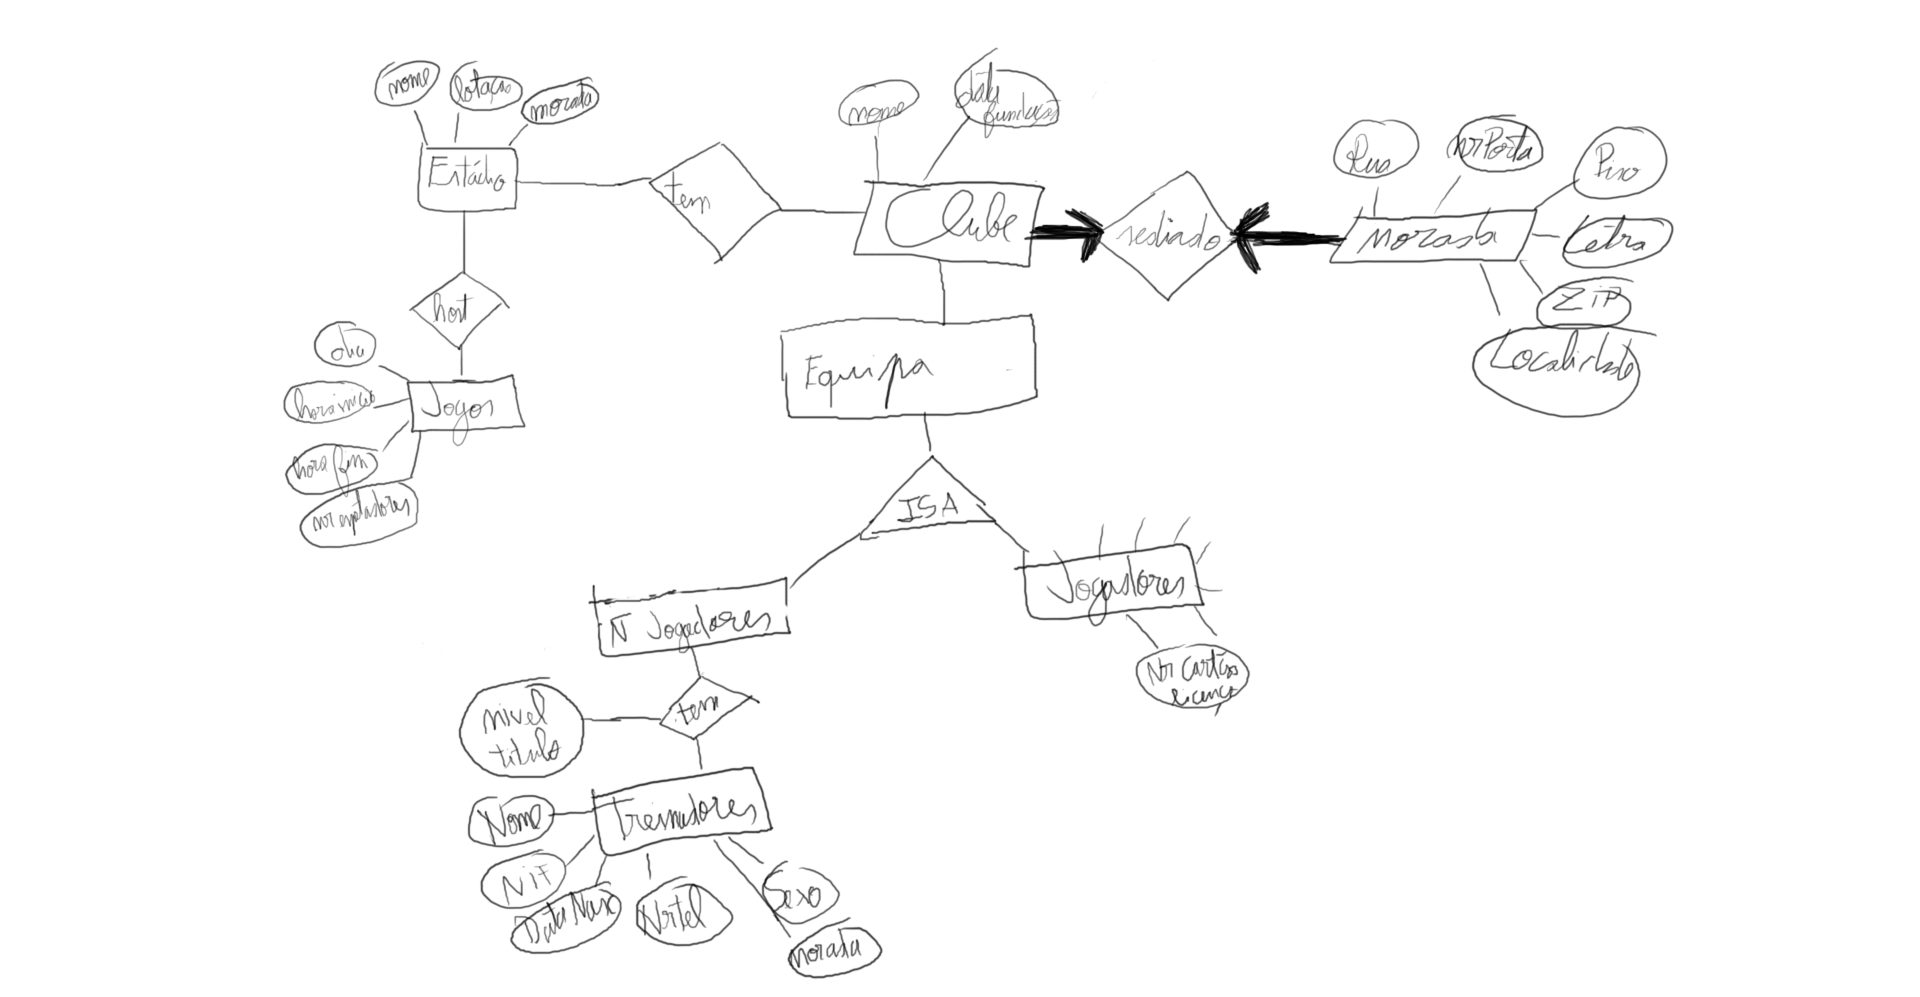 nome
lotação
morada
Estádio
tem
nome
data
fundação
Clube
sediado
Rua
nrPorta
Piso
Letra
ZIP
Localidade
Morada
host
dia
hora inicio
hora fim
nr espetadores
Jogos
Equipa
ISA
N Jogadores
Jogadores
Nr Cartão
licença
tem
nivel
titulo
Treinadores
Nome
NIF
Data Nasc
Nrtel
Sexo
morada